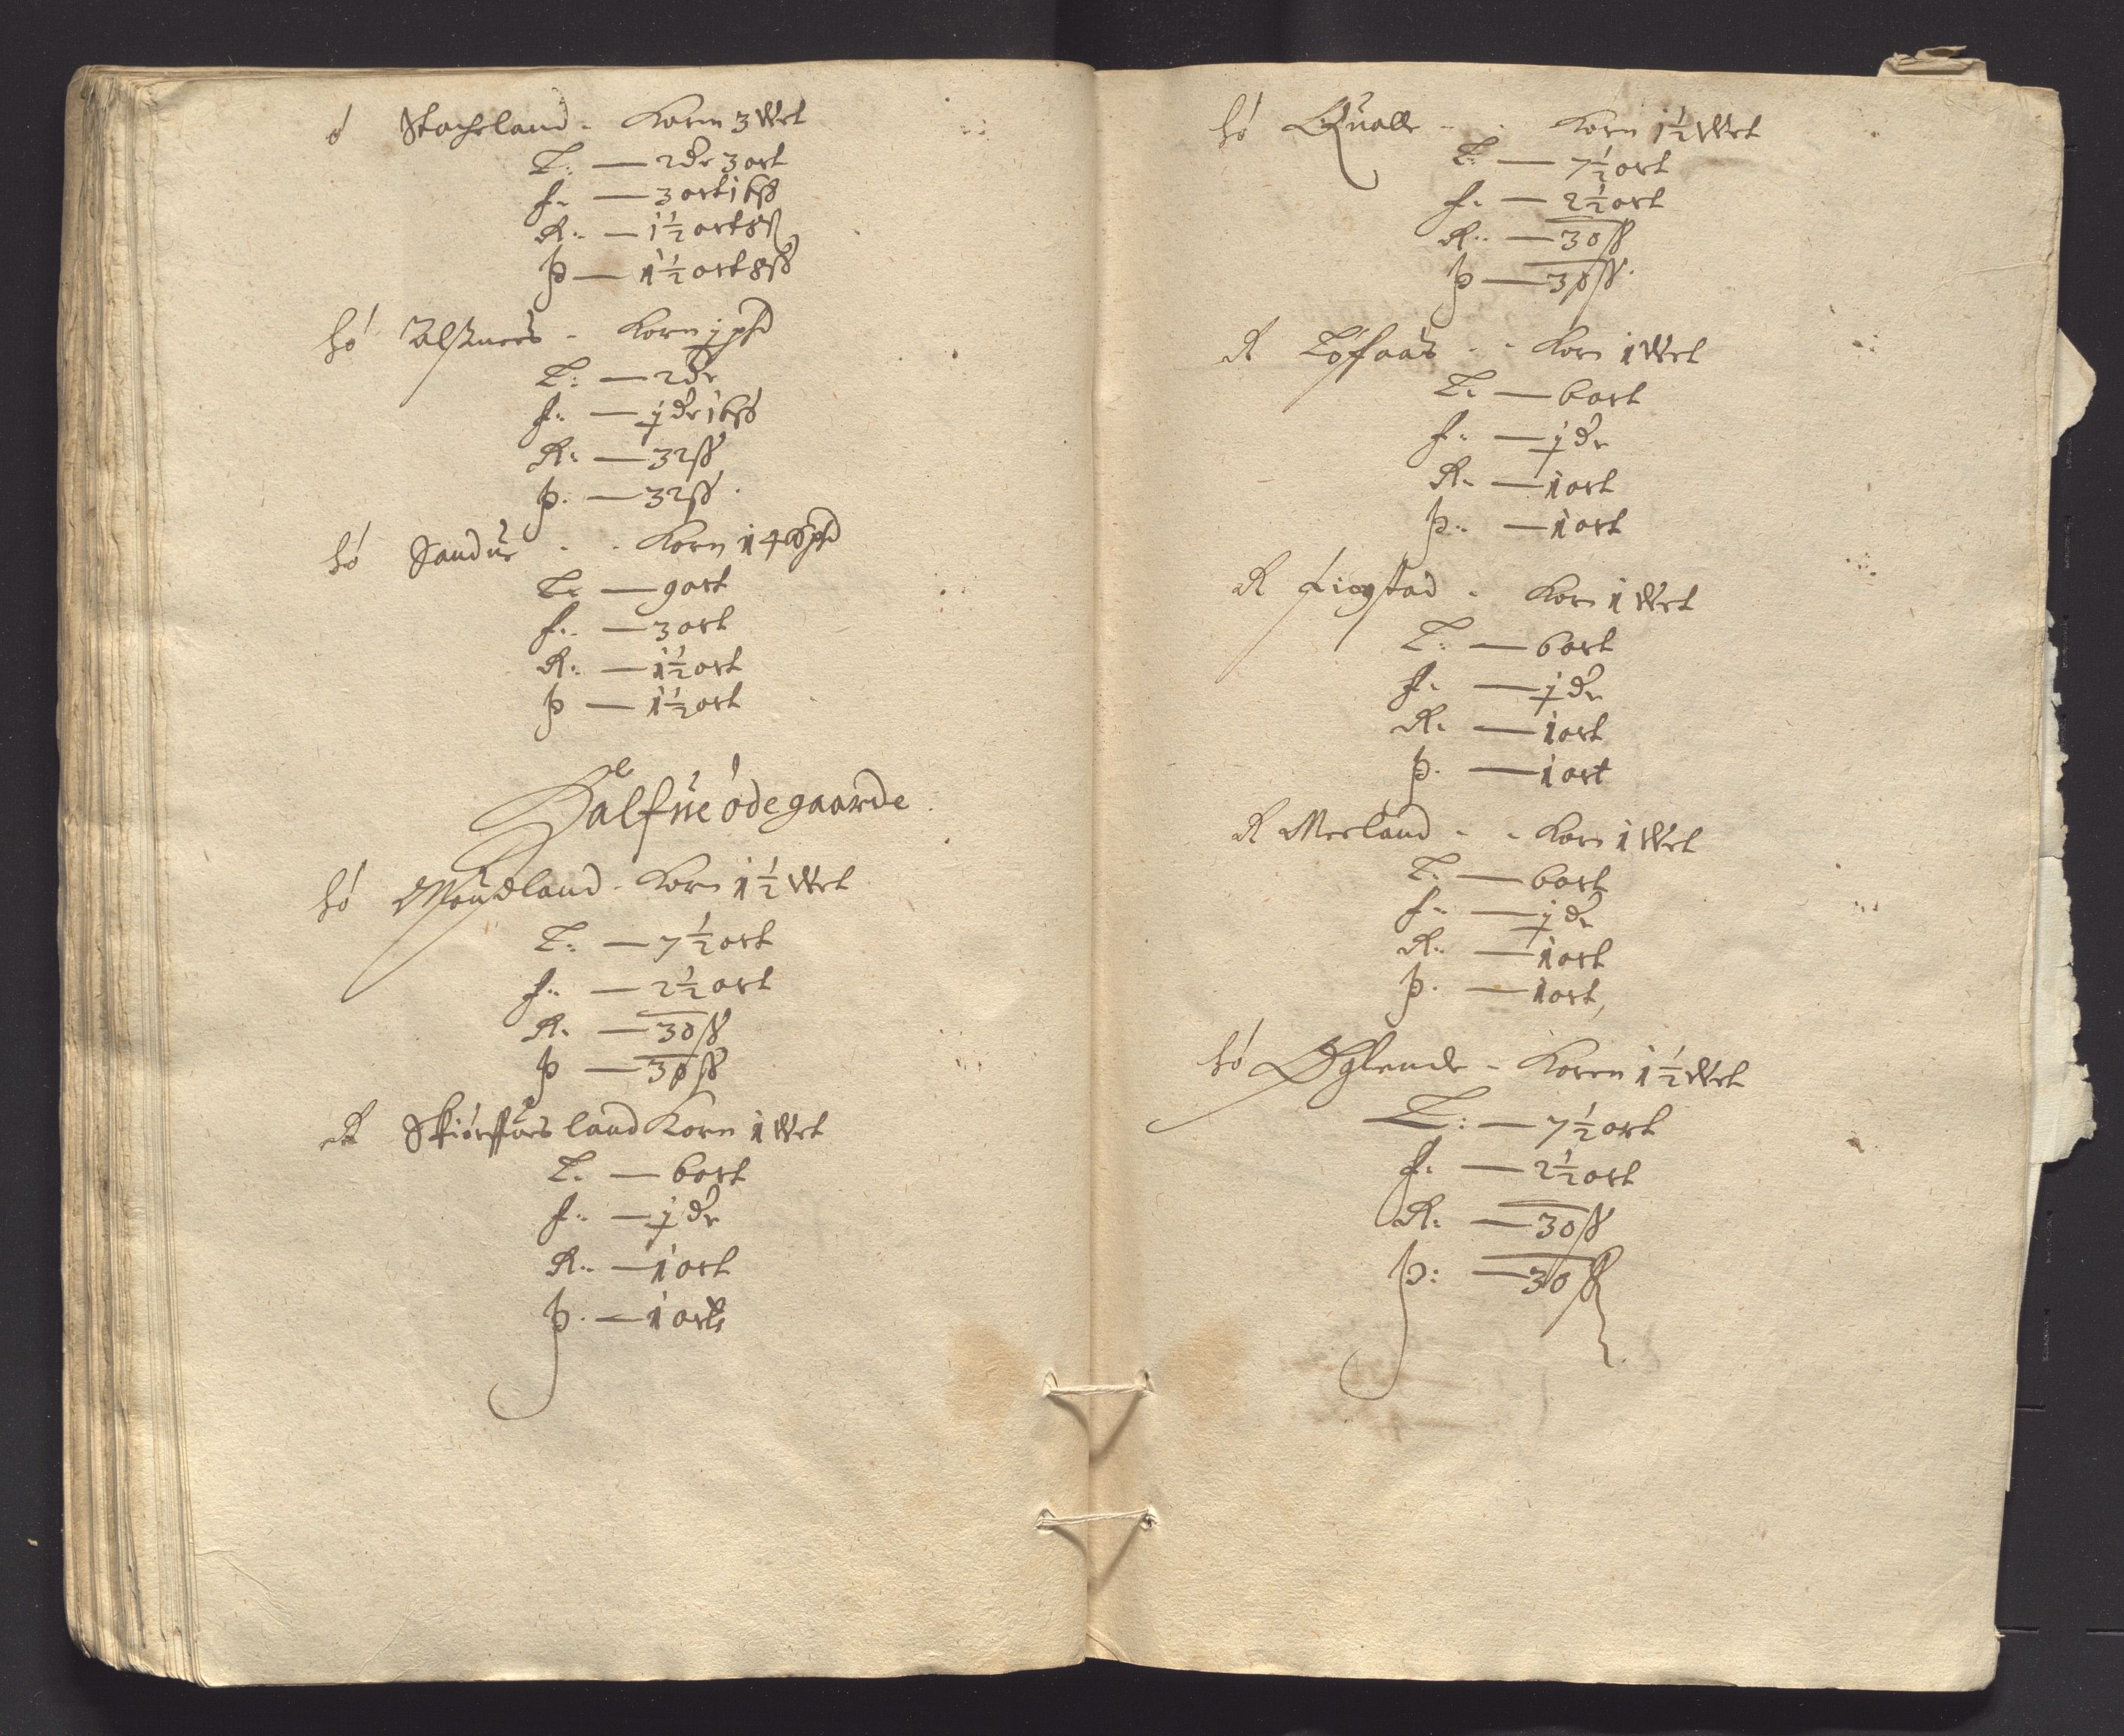 ó Stocheland - Korn 3 Wet
T: — 2 dr 3 ort
f: — 3 ort 16 ß
R: — 1½ ort 8 ß
Þ — 1½ ort 8 ß
hó Alsnees - Korn j pd
T: — 2 dr
f: — j dr 16 ß
R: — 32 ß
Þ. — 32 ß
hó Sandue - - Korn 14
T: — 9 ort
f: — 3 ort
R: — 1½ ort
Þ — 1½ ort
Halfue ódegaarde
hó Maudland - Korn 1½ Wet
T: — 7½ ort
f: — 2½ ort
R. — 30 ß
Þ — 30 ß
R land Korn 1 Wet
T. — 6 ort
f: — j dr
R: — 1 ort
Þ. — 1 ort
hó Qualle - - Korn 1½ Wet
T: — 7½ ort
f: — 2½ ort
R: — 30 ß
Þ — 30 ß
R Tófaas - - Korn 1 Wet
T: — 6 ort
f: — j dr
R: — 1 ort
Þ: — 1 ort
R - Korn 1 Wet
T: — 6 ort
f: — j dr
R: — 1 ort
Þ. — 1 ort
R Meeland - - Korn 1 Wet
T: — 6 ort
f: — j dr
R: — 1 ort
Þ. — 1 ort
hó Øglende - Korn 1½ Wet
T: — 7½ ort
f: — 2½ ort
R: — 30 ß
Þ: — 30 ß